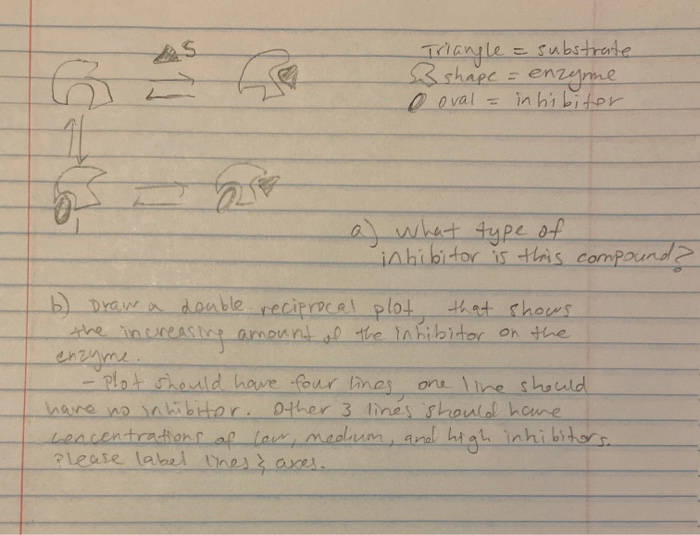 S
Triangle = substrate
shape = enzyme
oval = inhibitor
a) What type of
inhibitor is this compound?
b) Draw a double reciprocal plot, that shows
the increasing amount of the inhibitor on the
enzyme.
- Plot should have four lines, one line should
have no inhibitor. Other 3 lines should have
concentrations of low, medium, and high inhibitors.
Please label lines & axes.